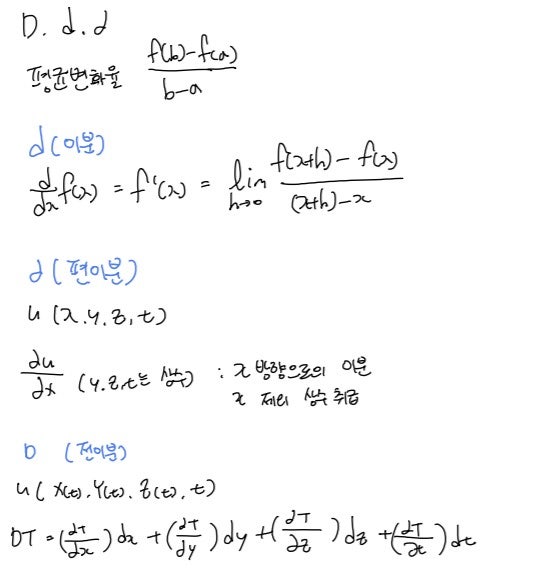 D. d. ∂
평균변화율 (f(b)-f(a))/(b-a)
d (미분)
d/dx f(x) = f'(x) = lim h→0 (f(x+h) - f(x))/((x+h)-x)
∂ (편미분)
u (x, y, z, t)
∂u/∂x (y, z, t는 상수) : x 방향으로의 미분
x 제외 상수 취급
D (전미분)
u( X(t), Y(t), Z(t), t)
DT = (∂T/∂x) dx + (∂T/∂y) dy + (∂T/∂z) dz + (∂T/∂t) dt